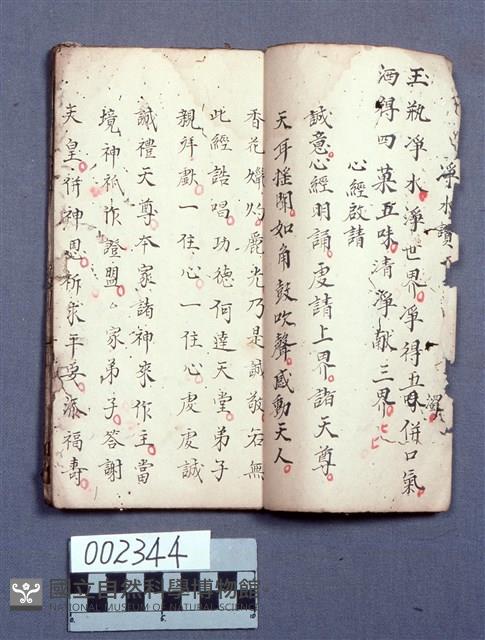 淨水讚
玉瓶淨水淨世界淨得五味併口氣
洒得四菓五味清淨献三界
心經啟請
誠意心經明誦虔請上界諸天尊
天耳搖聞如角鼓吹聲感動天人
香花燦灼鹿光乃是誠敬若無
此經誥唱功德何達天堂弟子
親拜獻一住心一住心虔虔誠
誠禮天尊本家諸神來作主當
境神祇作證盟家弟子答謝
天皇併神恩祈求平安添福壽
002344
國立自然科學博物館
NATIONAL MUSEUM OF NATURAL SCIENCE